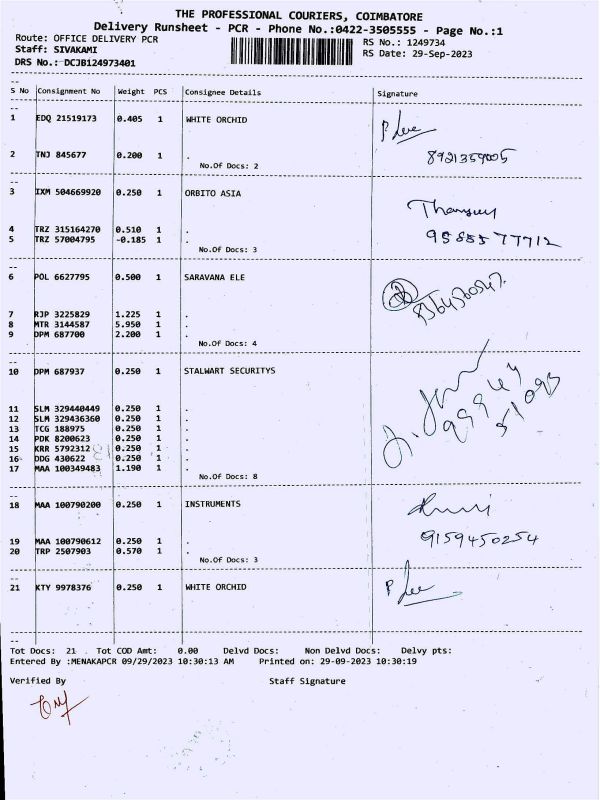 THE PROFESSIONAL COURIERS, COIMBATORE
Delivery Runsheet - PCR - Phone No.:0422-3505555 - Page No.:1
Route: OFFICE DELIVERY PCR RS No.: 1249734
Staff: SIVAKAMI RS Date: 29-Sep-2023
DRS No.: DCJB124973401
S No Consignment No Weight PCS Consignee Details Signature
1 EDQ 21519173 0.405 1 WHITE ORCHID
2 TNJ 845677 0.200 1 .
8921359005
No.Of Docs: 2
3 IXM 504669920 0.250 1 ORBITO ASIA
4 TRZ 315164270 0.510 1 .
5 TRZ 57004795 -0.185 1 .
No.Of Docs: 3
6 POL 6627795 0.500 1 SARAVANA ELE
7 RJP 3225829 1.225 1 .
8 MTR 3144587 5.950 1 .
9 DPM 687700 2.200 1 .
No.Of Docs: 4
10 DPM 687937 0.250 1 STALWART SECURITYS
11 SLM 329440449 0.250 1 .
12 SLM 329436360 0.250 1 .
13 TCG 188975 0.250 1 .
14 PDK 8200623 0.250 1 .
15 KRR 5792312 0.250 1 .
16 DDG 430622 0.250 1 .
17 MAA 100349483 1.190 1 .
No.Of Docs: 8
18 MAA 100790200 0.250 1 INSTRUMENTS
19 MAA 100790612 0.250 1 .
9159450254
20 TRP 2507903 0.570 1 .
No.Of Docs: 3
21 KTY 9978376 0.250 1 WHITE ORCHID
Tot Docs: 21 . Tot COD Amt: 0.00 Delvd Docs: Non Delvd Docs: Delvy pts:
Entered By :MENAKAPCR 09/29/2023 10:30:13 AM Printed on: 29-09-2023 10:30:19
Verified By Staff Signature